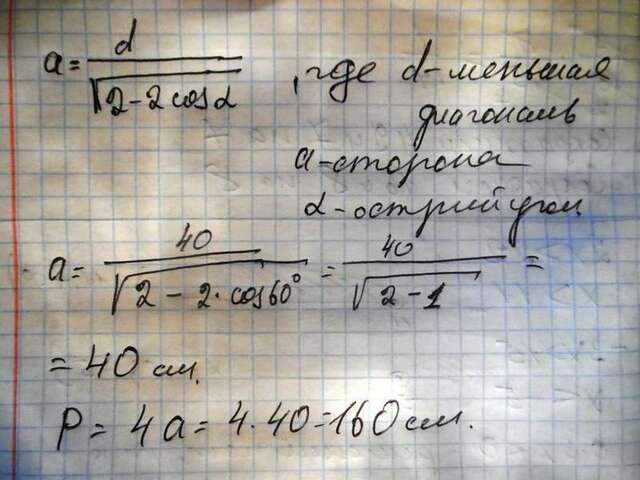 a = d / √(2 - 2 cosα) , где d - меньшая
диагональ
a - сторона
α - острый угол
a = 40 / √(2 - 2 · cos60°) = 40 / √(2 - 1) =
= 40 см.
P = 4a = 4 · 40 = 160 см.